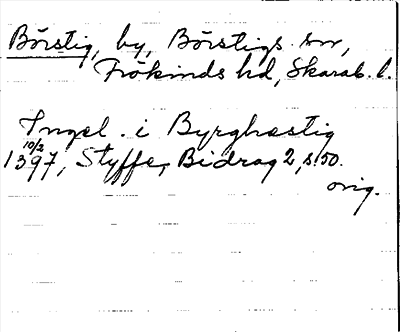 Börstig, by, Börstigs sn,
Frökinds hd, Skarab. l.
Ingel. i Byrghæstig
10/2
1397, Styffe, Bidrag 2, s. 50.
orig.